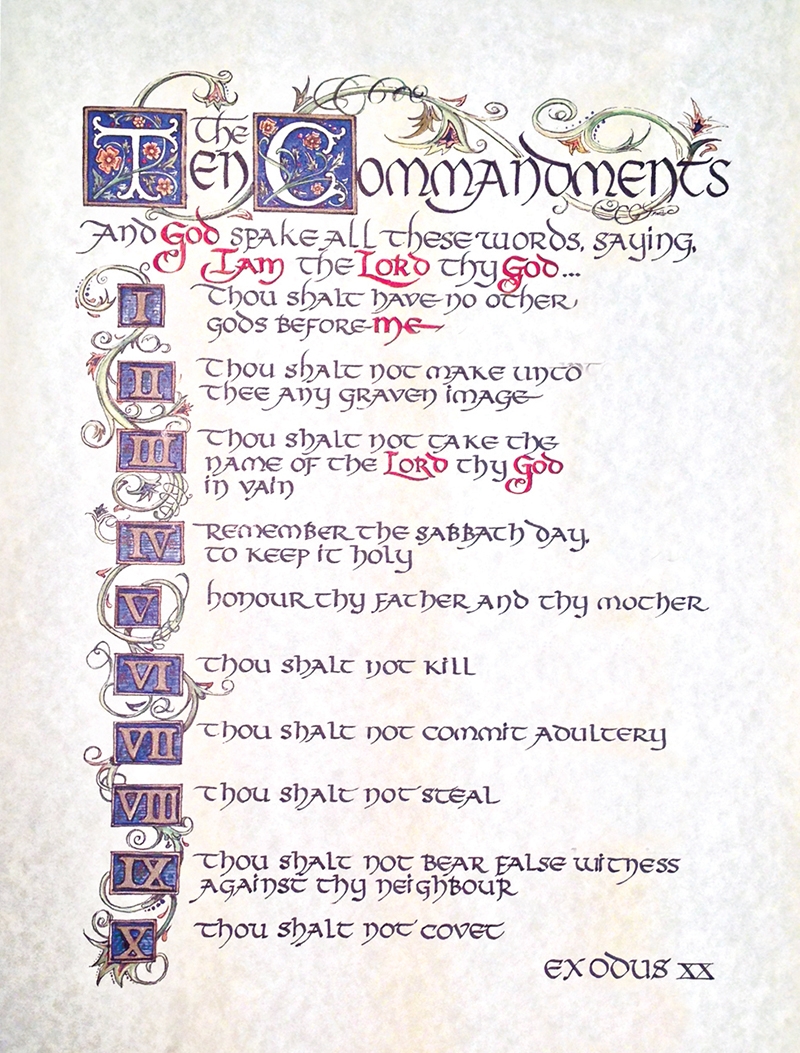 The
Ten Commandments
And God spake all these words, saying,
I am the Lord thy God...
I Thou shalt have no other
gods before me
II Thou shalt not make unto
thee any graven image
III Thou shalt not take the
name of the Lord thy God
in vain
IV Remember the Sabbath day,
to keep it holy
V Honour thy father and thy mother
VI Thou shalt not kill
VII Thou shalt not commit adultery
VIII Thou shalt not steal
IX Thou shalt not bear false witness
against thy neighbour
X Thou shalt not covet
Exodus XX